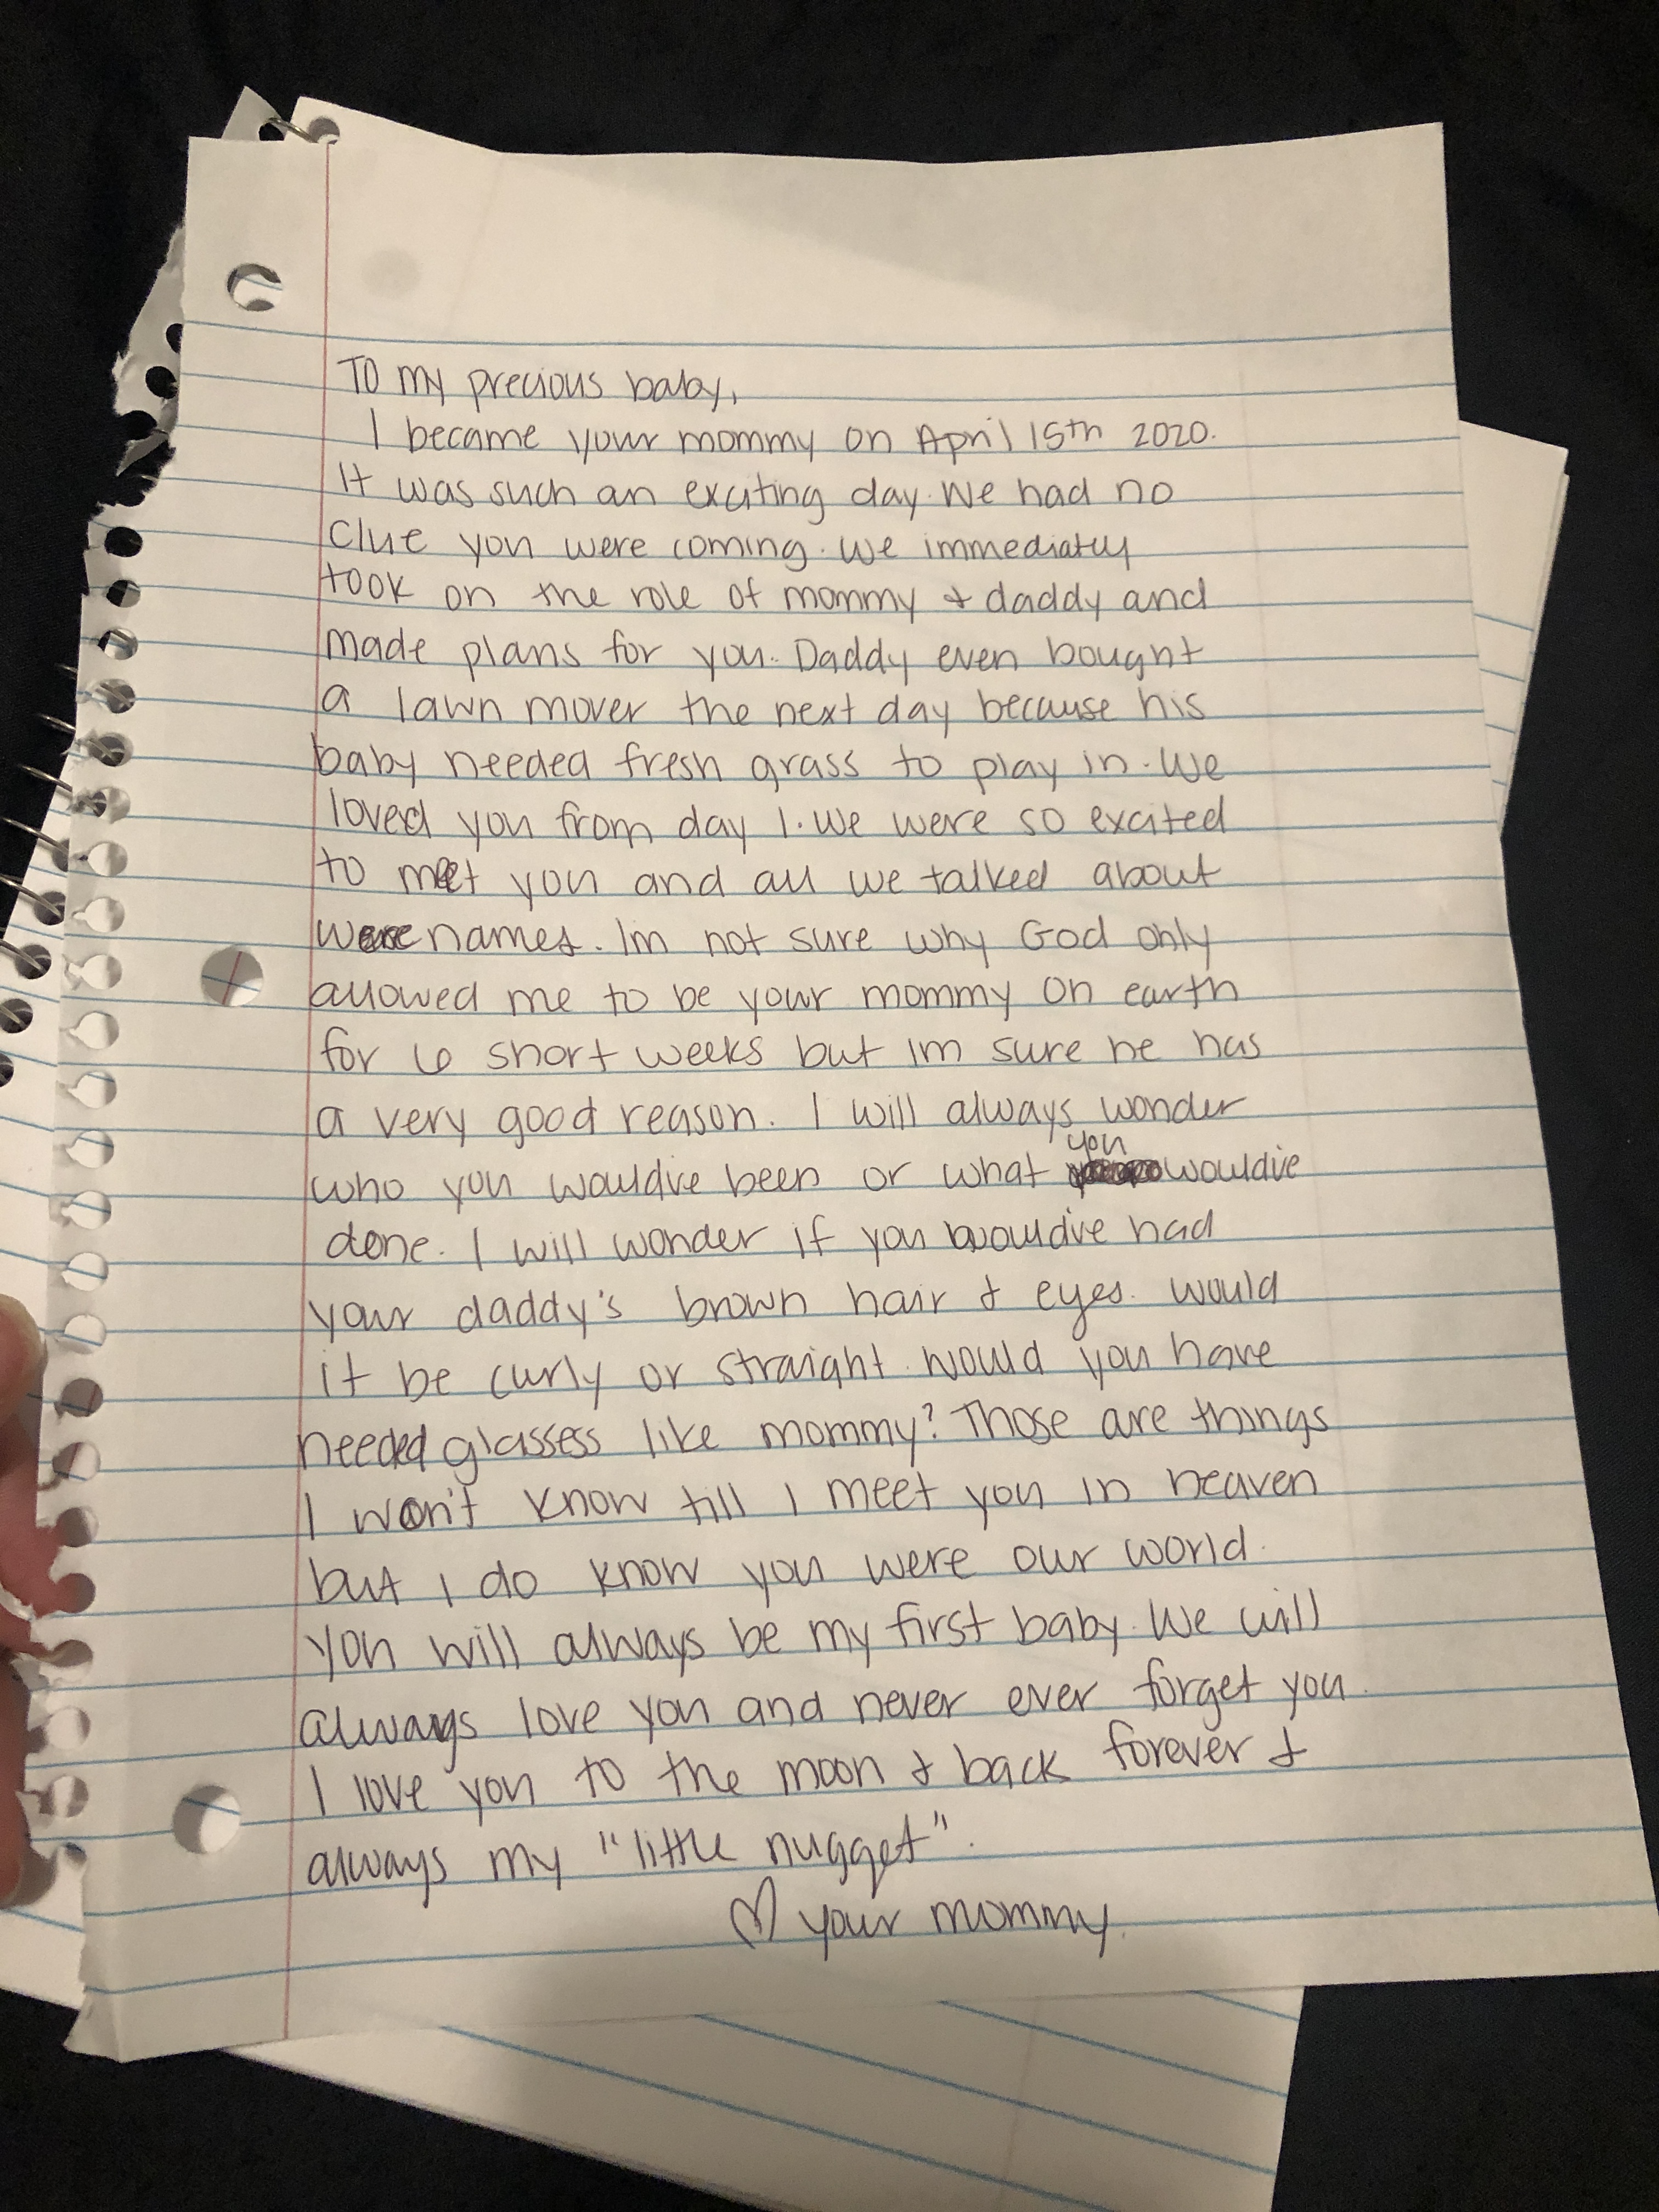 To my precious baby,
I became your mommy on April 15th 2020.
It was such an exciting day. We had no
clue you were coming. We immediatly
took on the role of mommy & daddy and
made plans for you. Daddy even bought
a lawn mover the next day because his
baby needed fresh grass to play in. We
loved you from day 1. We were so excited
to meet you and all we talked about
were names. Im not sure why God only
allowed me to be your mommy on earth
for 6 short weeks but Im sure he has
a very good reason. I will always wonder
who you would've been or what you would've
done. I will wonder if you would've had
your daddy's brown hair & eyes. Would
it be curly or straight. Would you have
needed glassess like mommy? Those are things
I won't know till I meet you in heaven
but I do know you were our world.
You will always be my first baby. We will
always love you and never ever forget you.
I love you to the moon & back forever &
always my "little nugget".
♡ your mommy.